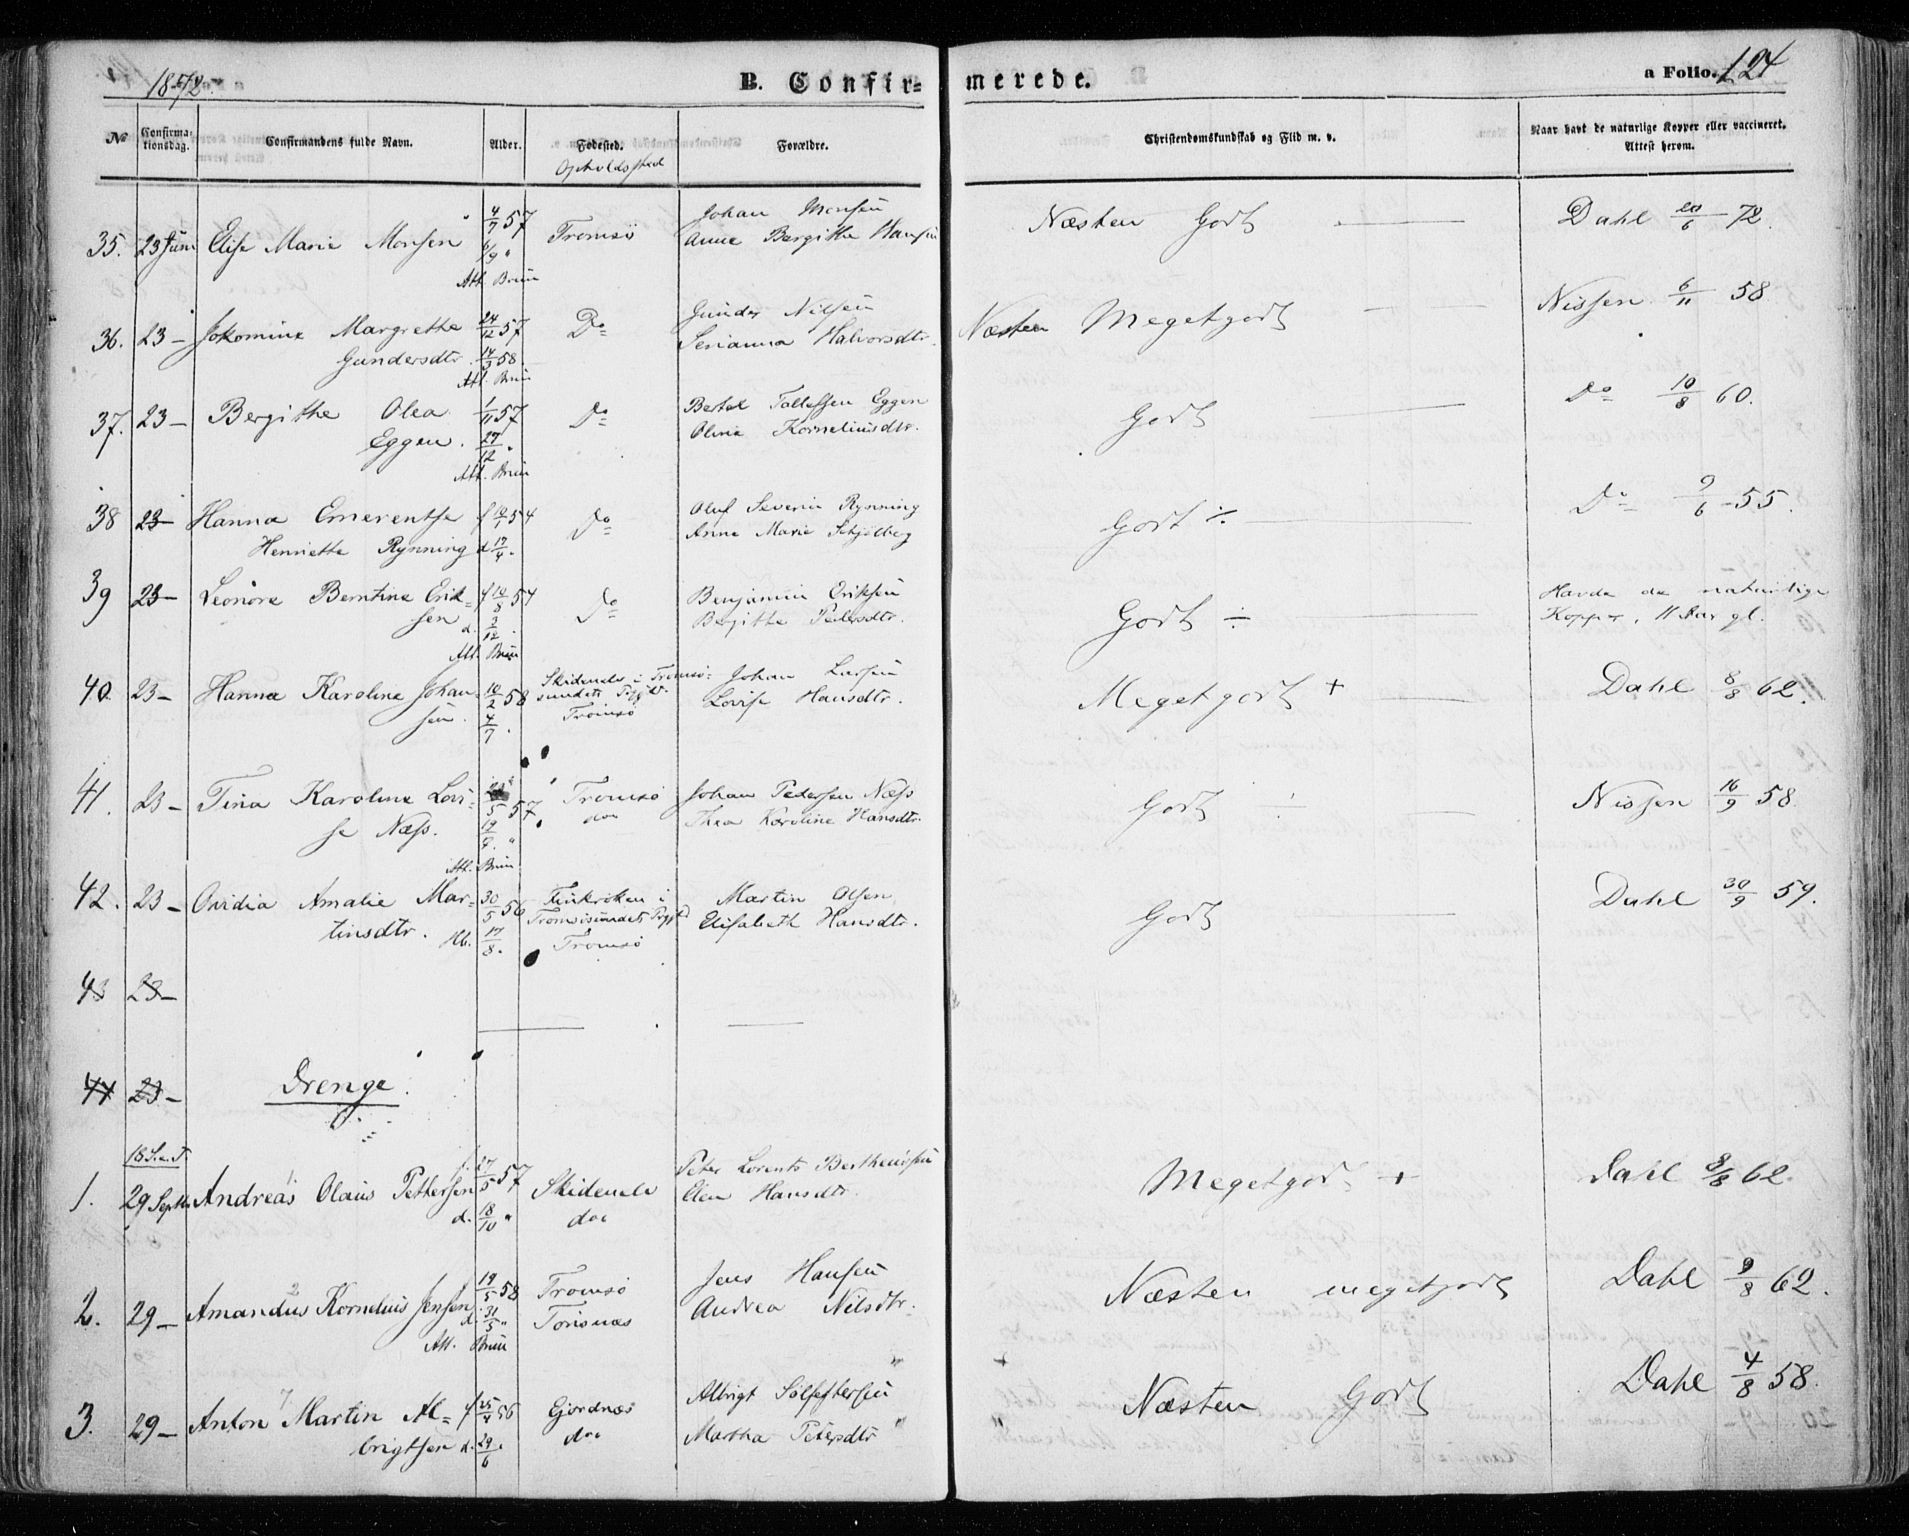 1872. B. Confir= merede. a Folio. 124
No Confirma-tionsdag. Confirmandens fulde Navn. Alder. Fødested. Forældre. Christendomskundskab og Flid m. v. Naar havt de naturlige Kopper eller vaccineret. Attest herom.
Opholdssted
35. 23 Juni Elise Marie Monsen 4/7 57 Tromsö Johan Monsen Næsten Godt Dahl 20/6 72.
6/9 " Anne Bergitha Hansen
Att. Bruun
36. 23 — Jokomine Margrethe 24/12 57 Do Gunder Nilsen Næsten Megetgodt Nissen 6/11 58
Gundersdtr. 14/3 58. Serianna Halvorsdtr.
Att. Bruun
37. 23 — Bergithe Olea 1/11 57 Do Bertel Tollefsen Eggen Godt Do 10/8 60.
Eggen. 27/12 " Oline Korneliusdtr.
Att. Bruun
38 23 — Hanna Emerentse f 10/1 54 Do Oluf Severin Rynning Godt ÷ Do 9/6 - 55.
Henriette Rynning d 17/4 . Anne Marie Schjelberg
39 23 — Leonore Berntine Erik= f 10/8 54 Do Benjamin Eriksen Godt ÷ Havde de naturlige
sen d. 3/12 . Bergitha Pedersdtr. Kopper, 11 Aar gl.
Att. Bruun
40. 23 — Hanna Karoline Johan= 10/2 58 Skidenelv i Tromsö= Johan Larsen Megetgodt + Dahl 8/8 62.
sen. 4/7 . sundets Prgjld. Lovise Hansdtr.
Tromsö
41. 23 — Tina Karoline Lovi= 5 57 Tromsö Johan Petersen Næss Godt Nissen 16/9 58.
se Næss. 19 " do Thea Karoline Hansdtr.
Att. Bruun
42. 23 — Ovidia Amalie Mar= 30/5 56 Finkroken i Martin Olsen Godt Dahl 30/9 59.
tinsdtr. 17/8 . Tromsösundets Elisabeth Hansdtr.
Tromsö
43 23 —
44 23 — Drenge.
1. 29 Septbr Andreas Olaus Pettersen 27/5 57 Skidenelv Peter Lorents Megetgodt + Dahl 8/8 62.
d. 18/10 " do Elen Hansdtr.
2. 29 — Amandus Kornelius Jensen 19/5 58 Tromsö Jens Hansen Næsten megetgodt Dahl 9/8 62.
d. 31/5 " Tonsnæs Andrea Nilsdtr.
Att. Bruun
3. 29 — Anton Martin Al= f 25/4 56 Gjordnæs Albrigt Næsten Godt Dahl 4/8 58.
brigtsen d. 29/6 " do Martha Petersdtr "